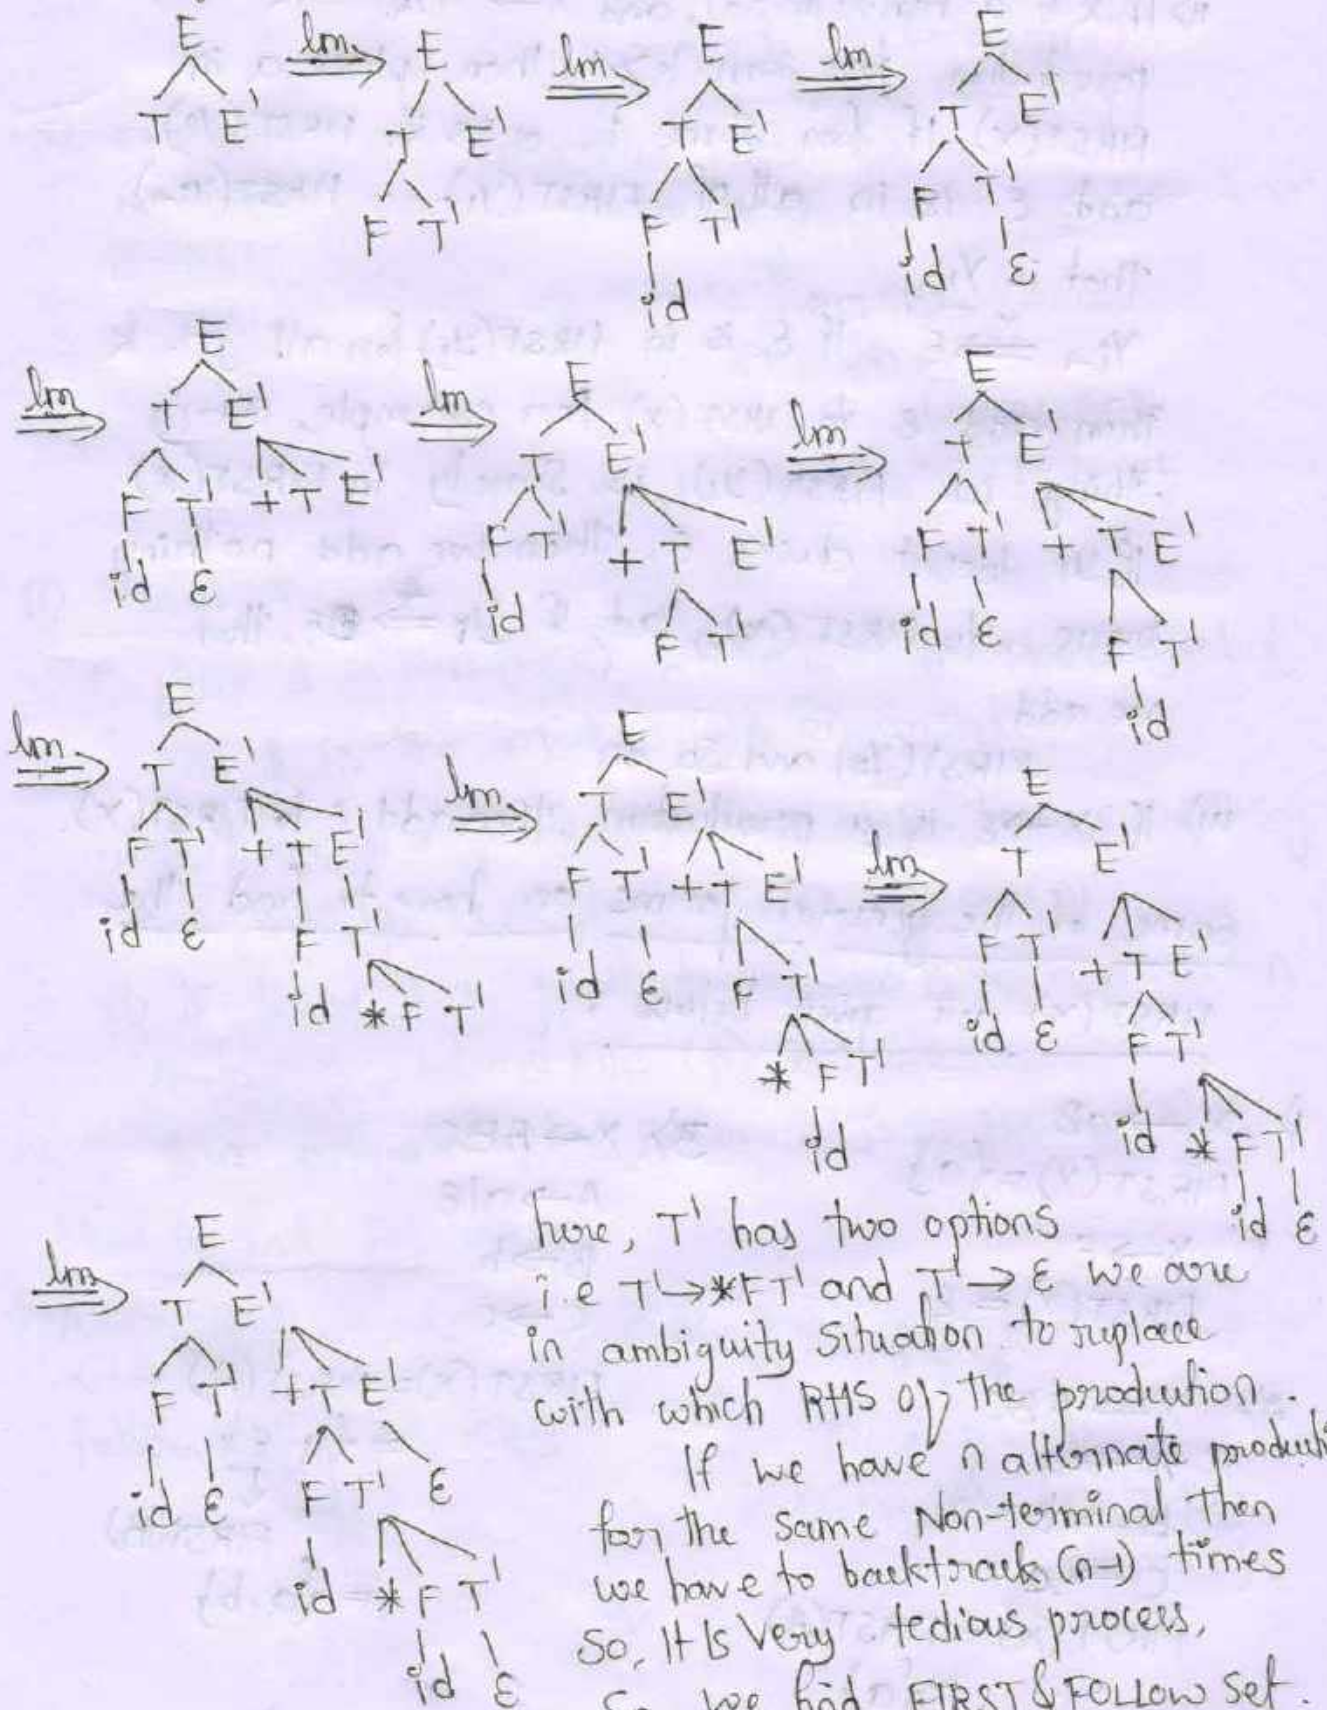 E lm E lm E lm E
T E' T E' T E' T E'
F T' F T' F T'
id id ε
lm E lm E lm E
T E' T E' T E'
F T' + T E' F T' + T E' F T' + T E'
id ε id F T' id ε F T'
id
lm E lm E lm E
T E' T E' T E'
F T' + T E' F T' + T E' F T' + T E'
id ε F T' id ε F T' id ε F T'
id * F T' * F T' id * F T'
id id ε
lm E
T E'
F T' + T E'
id ε F T' ε
id * F T'
id ε
here, T' has two options
i.e T'→*FT' and T'→ε we are
in ambiguity situation to replace
with which RHS of the production.
If we have n alternate producti
for the same Non-terminal then
we have to backtrack (n-1) times
So, It Is Very tedious process,
So we find FIRST & FOLLOW set.